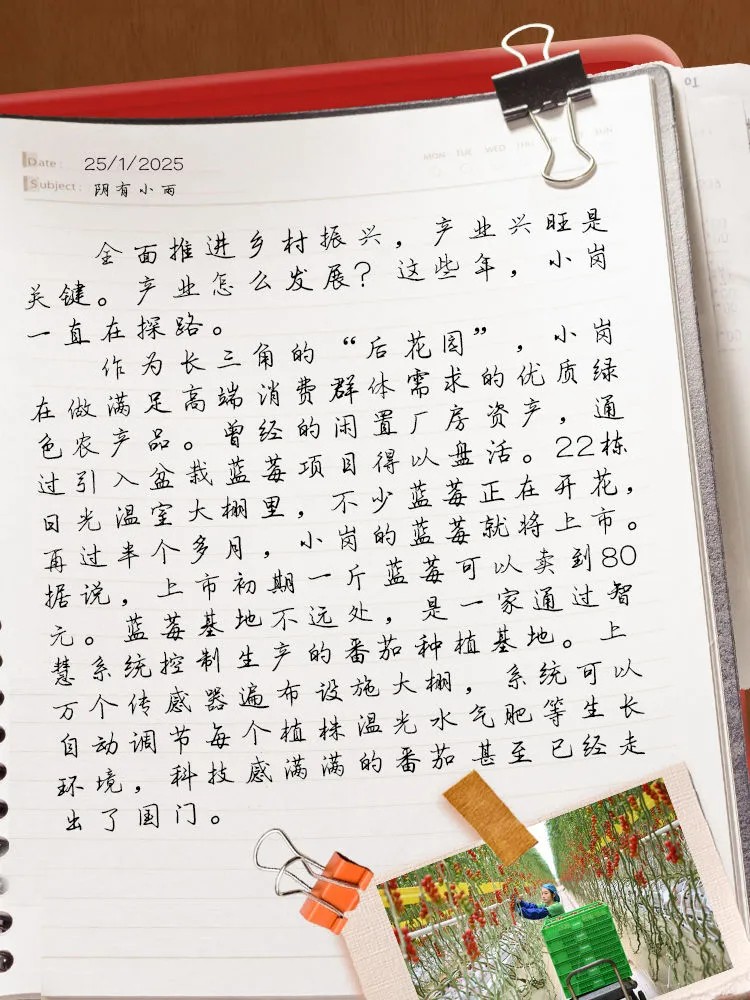 Date: 25/1/2025
Subject: 阴有小雨
MON TUE WED THU SUN
To
全面推进乡村振兴，产业兴旺是
关键。产业怎么发展？这些年，小岗
一直在探路。
作为长三角的“后花园”，小岗
在做满足高端消费群体需求的优质绿
色农产品。曾经的闲置厂房资产，通
过引入盆栽蓝莓项目得以盘活。22栋
日光温室大棚里，不少蓝莓正在开花，
再过半个多月，小岗的蓝莓就将上市。
据说，上市初期一斤蓝莓可以卖到80
元。蓝莓基地不远处，是一家通过智
慧系统控制生产的番茄种植基地。上
万个传感器遍布设施大棚，系统可以
自动调节每个植株温光水气肥等生长
环境，科技感满满的番茄甚至已经走
出了国门。